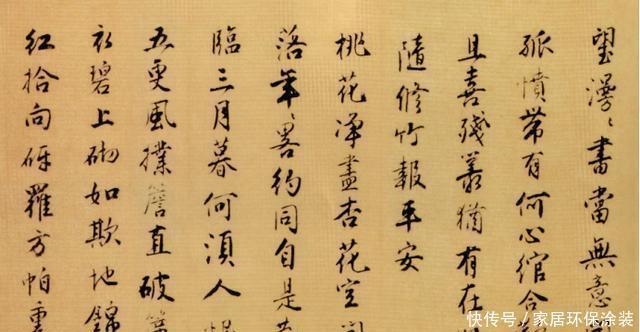 望漫〻書當無意
孤憤帶有何心綰合
且喜殘叢猶有在
隨修竹報平安
桃花淨盡杏花空
落年畧約同自是
臨三月暮何須人
五更風撲簷直破
衣碧上砌如欺地錦
紅拾向砑羅方帕
快传号/家居环保涂装